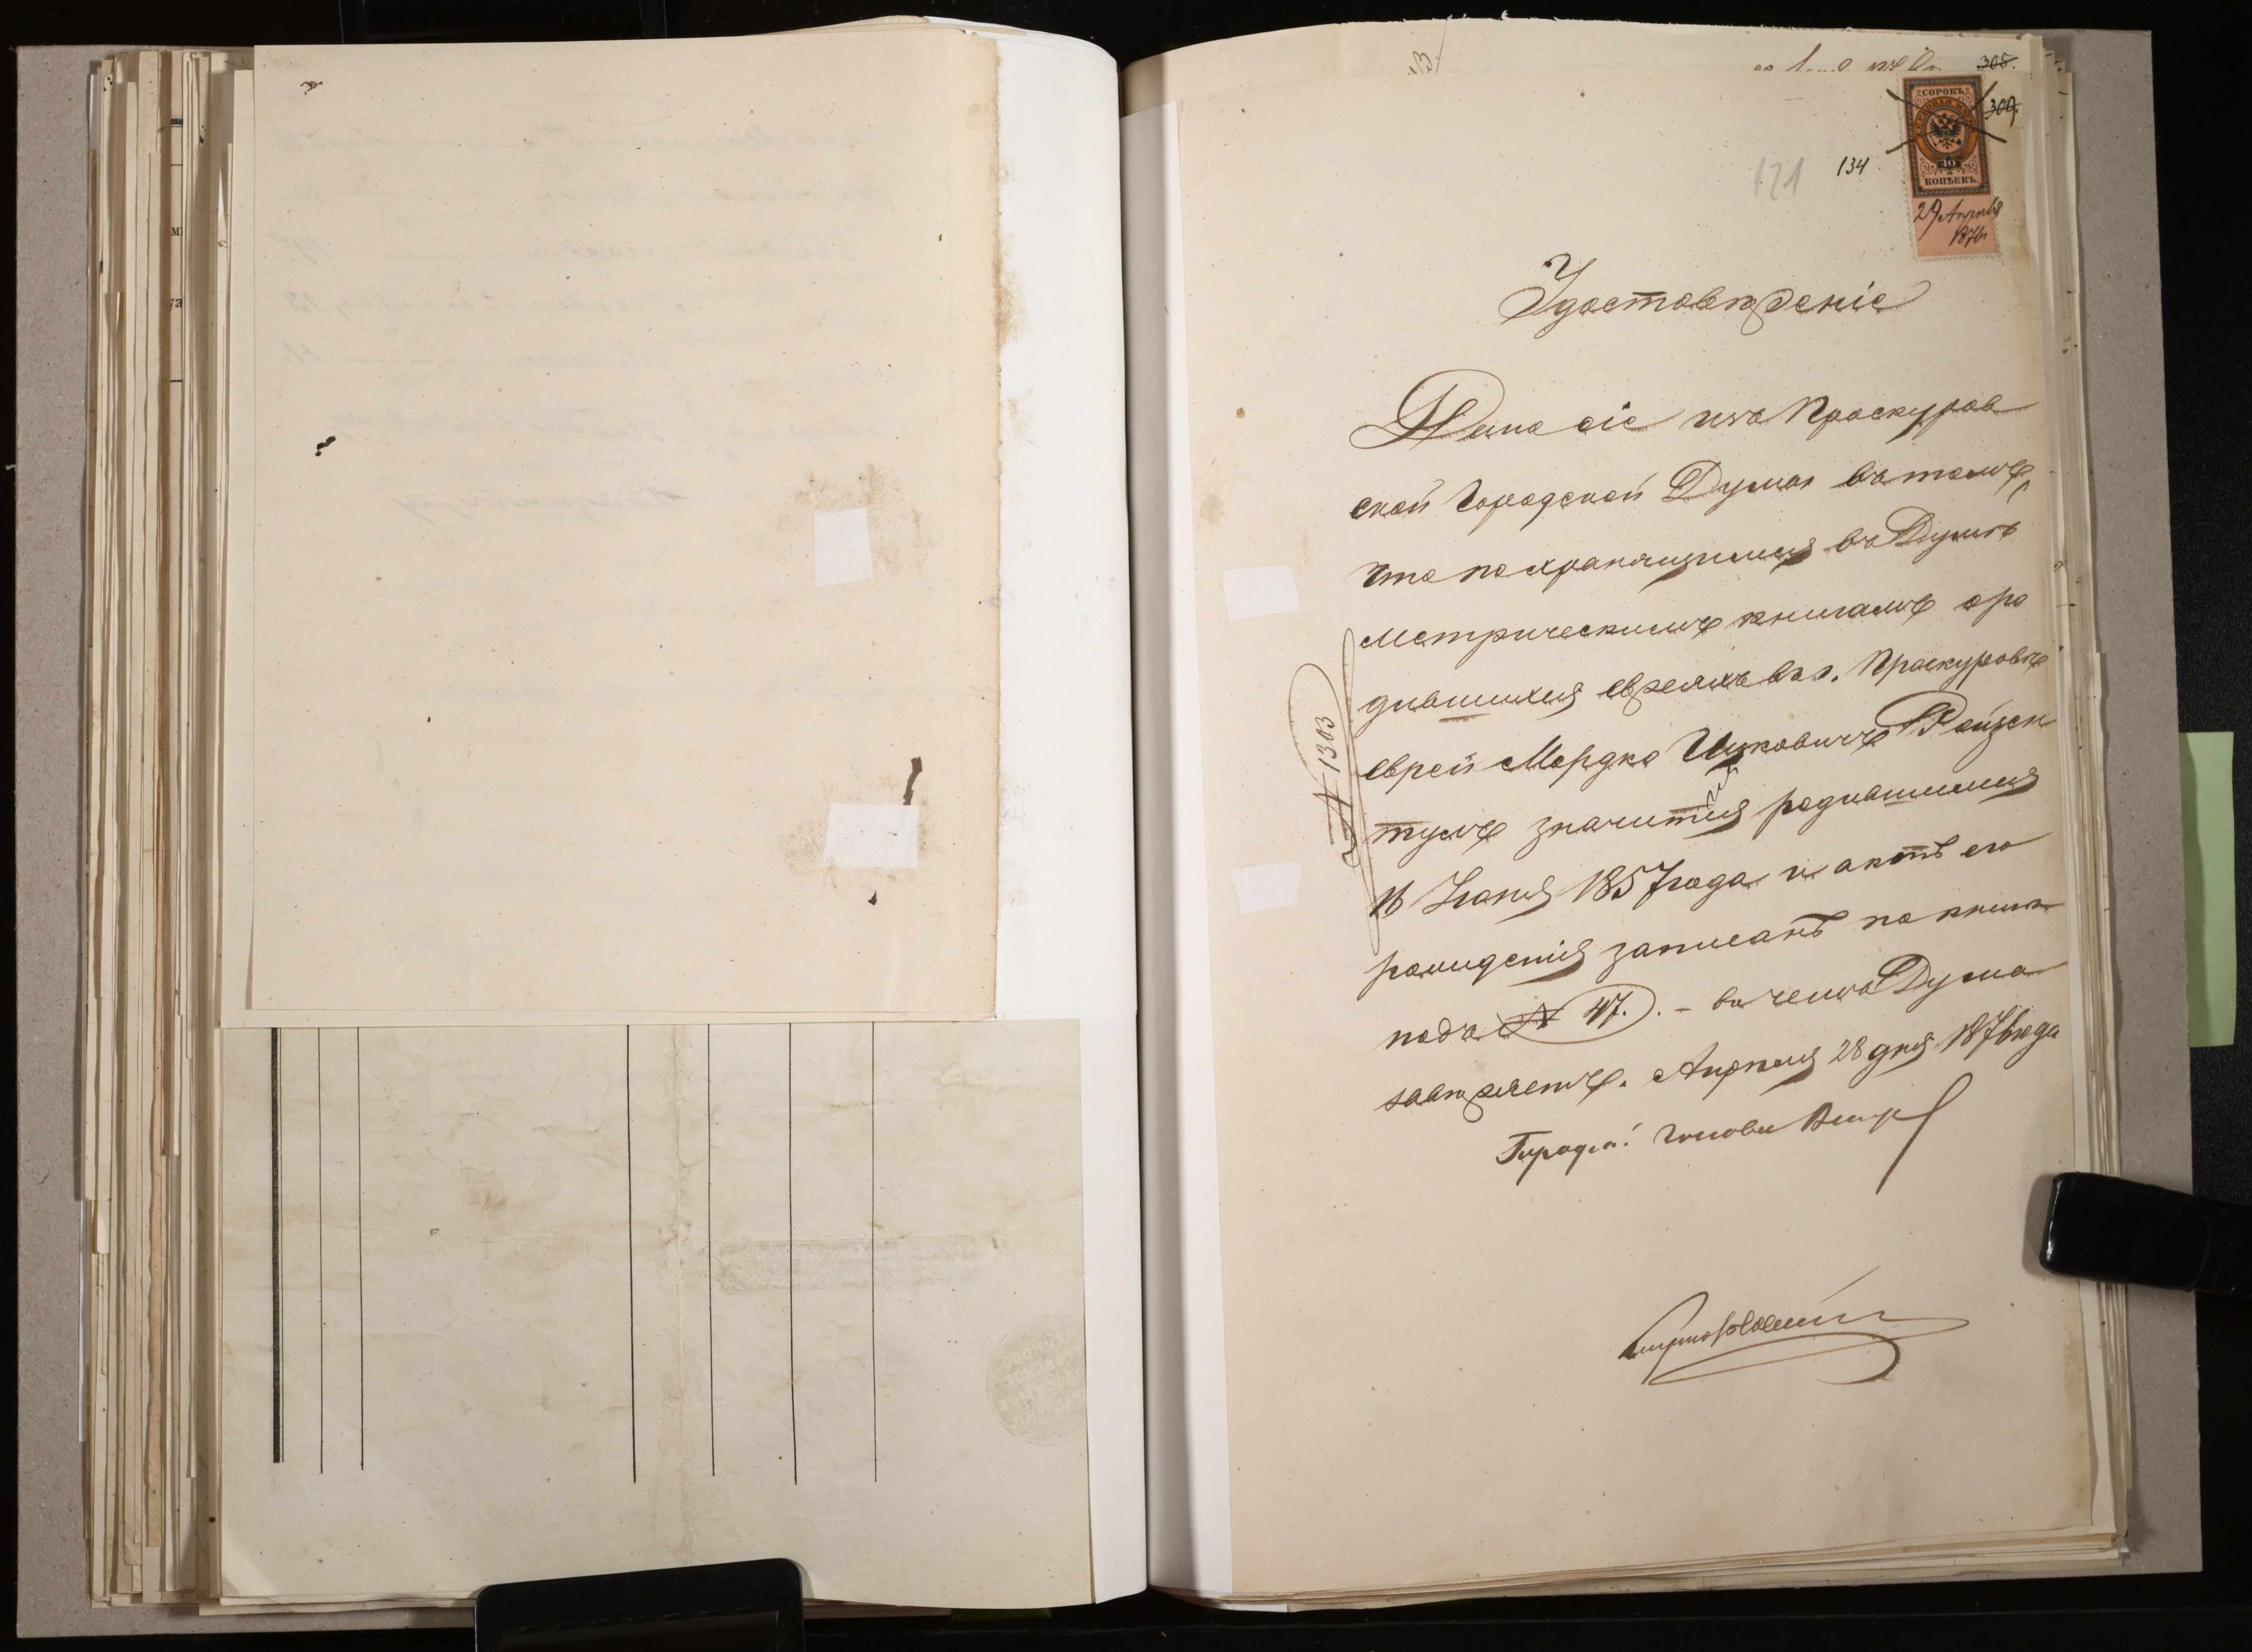 305.
СОРОКЪ
309.
40
КОПѢЕКЪ.
121 134
29 Апрѣля
1876
Удостовѣреніе
Дано сіе изъ Проскуров
ской Городской Думы въ томъ,
что по хранящимся въ Думѣ
метрическимъ книгамъ о ро
дившихся евреяхъ въ г. Проскуровѣ
еврей Мордко Ицковичъ Ройзен
№ 1303
тулъ значится родившимся
16 Іюня 1857 года и актъ его
рожденія записанъ по книгѣ
подъ № 47. – въ чемъ Дума
завѣряетъ. Апрѣля 28 дня 1876 года
Городск: Голова